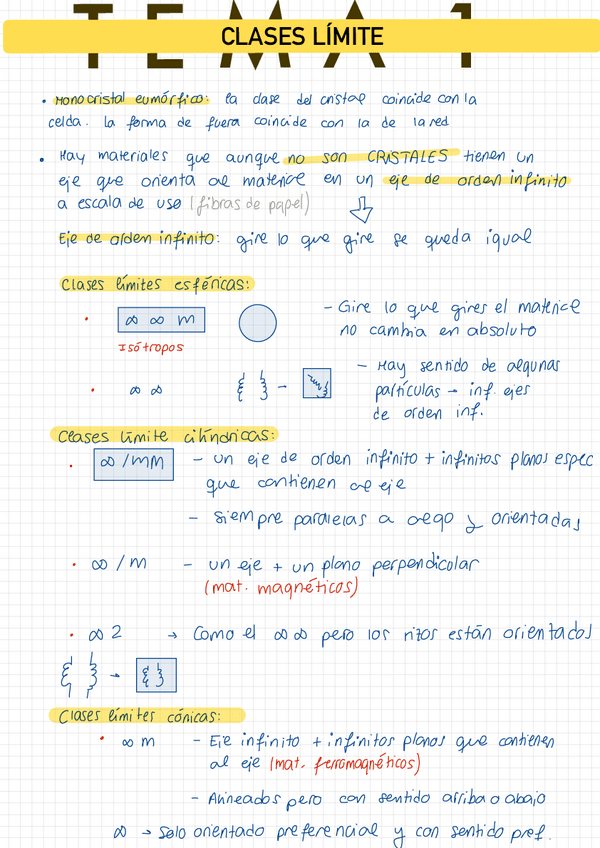 TEMA 1
CLASES LÍMITE
• Monocristal eumórfico: la clase del cristal coincide con la
celda. la forma de fuera coincide con la de la red
• Hay materiales que aunque no son CRISTALES tienen un
eje que orienta al material en un eje de orden infinito
a escala de uso (fibras de papel)
Eje de orden infinito: gire lo que gire se queda igual
Clases límites esféricas:
• ∞ ∞ m – Gire lo que gires el material
no cambia en absoluto
Isótropos
• ∞ ∞ – Hay sentido de algunas
partículas → inf. ejes
de orden inf.
Clases límite cilíndricas:
• ∞/mm – un eje de orden infinito + infinitos planos espec
que contienen al eje
– siempre paralelas a algo y orientadas
• ∞/m – un eje + un plano perpendicular
(mat. magnéticos)
• ∞2 → Como el ∞∞ pero los rizos están orientados
Clases límites cónicas:
• ∞m – Eje infinito + infinitos planos que contienen
al eje (mat. ferromagnéticos)
– Alineados pero con sentido arriba o abajo
∞ → Solo orientado preferencial y con sentido pref.